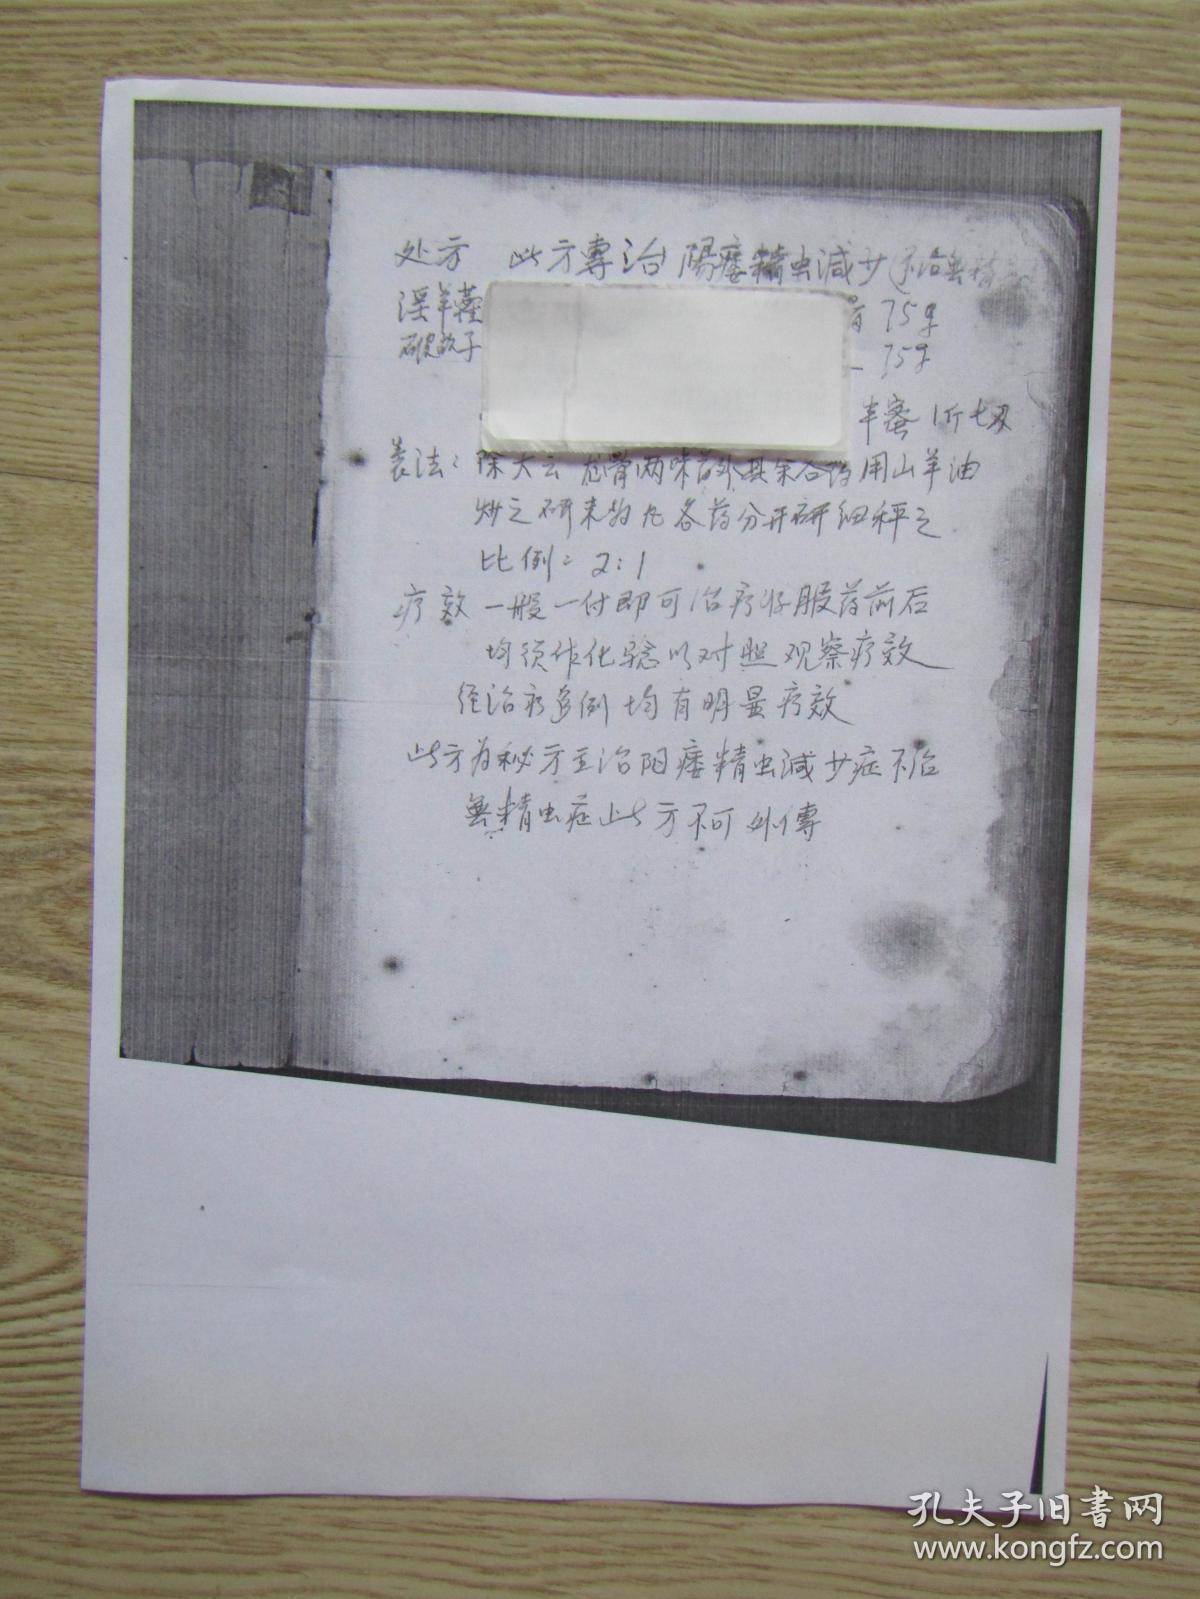 处方 此方專治陽痿精虫减少(不治無精
淫羊藿 75g
破故子 75g
丰蜜 1斤七双
表法: 除大云 龙骨两味药外其余合药用山羊油
炒之研末为丸各药分开研细秤之
比例: 2:1
疗效 一般一付即可治疗好服药前后
均须作化验以对照观察疗效
经治疗多例均有明显疗效
此方为秘方主治阳痿精虫减少症不治
無精虫症此方不可外傳
孔夫子旧书网
www.kongfz.com